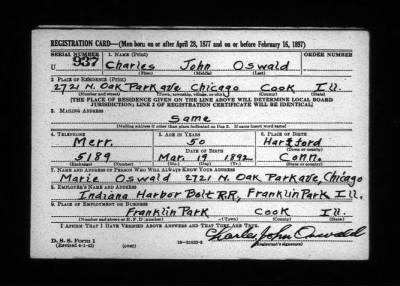 REGISTRATION CARD—(Men born on or after April 28, 1877 and on or before February 16, 1897)
SERIAL NUMBER 1. NAME (Print) ORDER NUMBER
U 937 Charles John Oswald
(First) (Middle) (Last)
2. PLACE OF RESIDENCE (Print)
2721 N. Oak Park ave Chicago Cook Ill.
(Number and street) (Town, township, village, or city) (County) (State)
[THE PLACE OF RESIDENCE GIVEN ON THE LINE ABOVE WILL DETERMINE LOCAL BOARD
JURISDICTION; LINE 2 OF REGISTRATION CERTIFICATE WILL BE IDENTICAL]
3. MAILING ADDRESS
Same
[Mailing address if other than place indicated on line 2. If same insert word same]
4. TELEPHONE 5. AGE IN YEARS 6. PLACE OF BIRTH
Merr. 50 Hartford
DATE OF BIRTH (Town or county)
5189 Mar. 19 1892 Conn.
(Exchange) (Number) (Mo.) (Day) (Yr.) (State or country)
7. NAME AND ADDRESS OF PERSON WHO WILL ALWAYS KNOW YOUR ADDRESS
Marie Oswald 2721 N. Oak Park ave, Chicago
8. EMPLOYER'S NAME AND ADDRESS
Indiana Harbor Belt R.R, Franklin Park Ill.
9. PLACE OF EMPLOYMENT OR BUSINESS
Franklin Park Cook Ill.
(Number and street or R. F. D. number) (Town) (County) (State)
I AFFIRM THAT I HAVE VERIFIED ABOVE ANSWERS AND THAT THEY ARE TRUE.
D. S. S. Form 1
(Revised 4-1-42) (over) Charles John Oswald